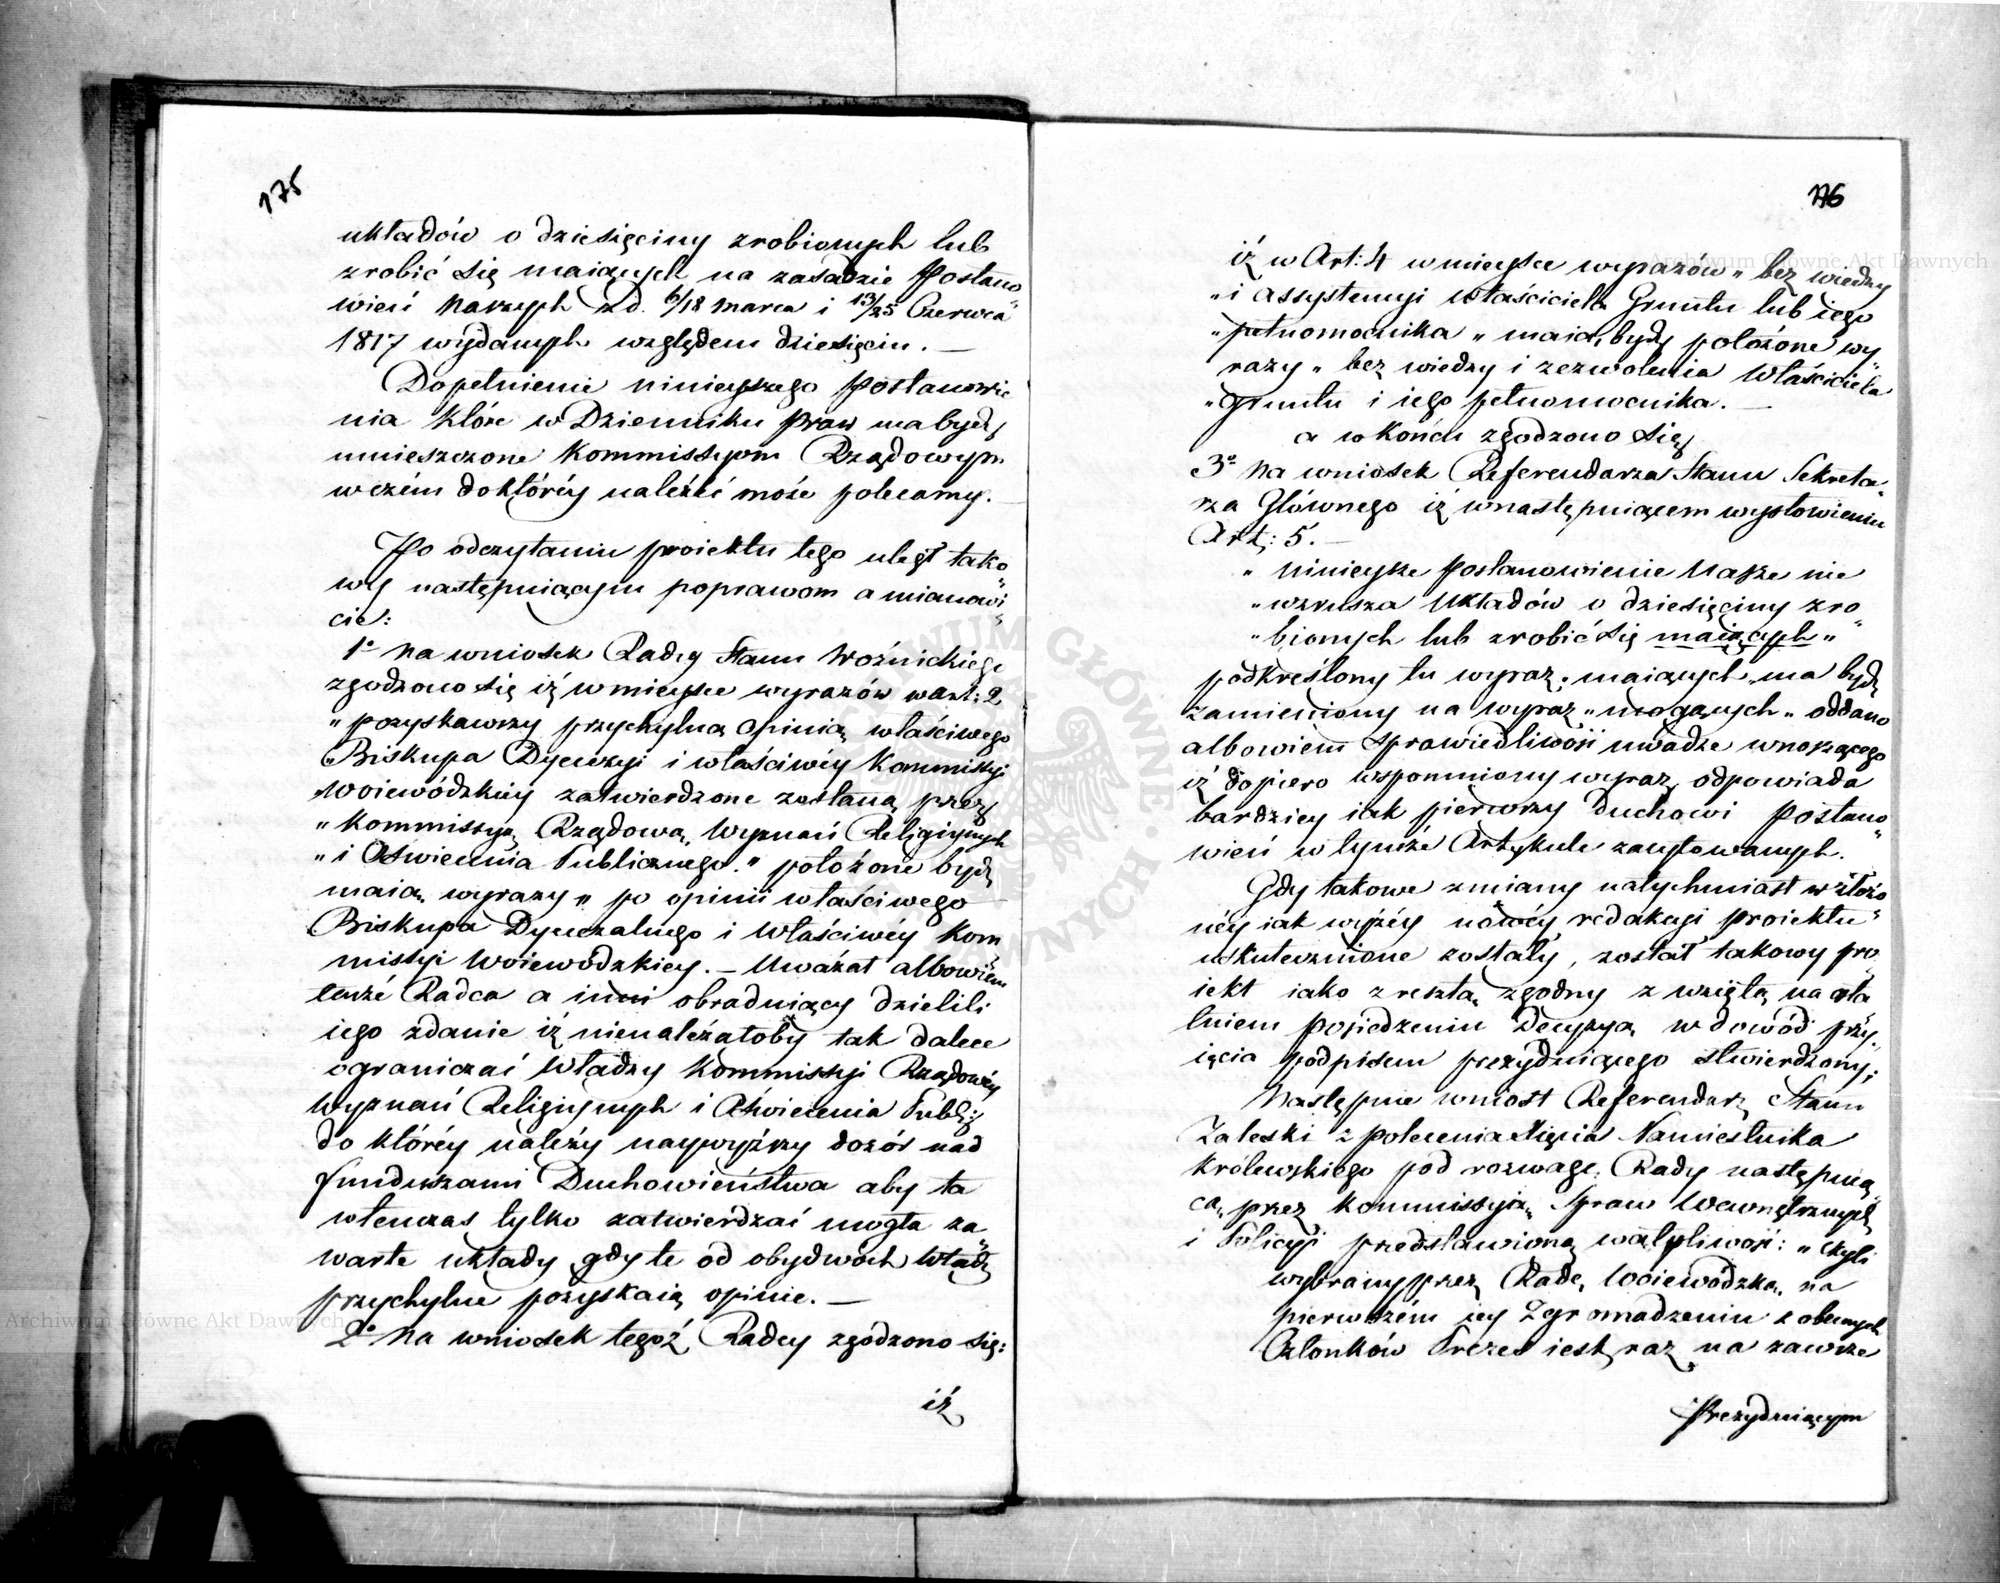 175
układów o dziesięciny zrobionych lub
zrobić się maiących na zasadzie Postano„
wień Naszych z d. 6/18 Marca i 13/25 Czerwca
1817 wydanych względem dziesięcin. —
Dopełnienie ninieyszego Postanowie
nia które w Dzienniku Praw ma bydź
umieszczone Kommissyom Rządowym
w czém do któréy należéć może polecamy. —
Po odczytaniu proiektu tego uległ tako„
wy następuiącym poprawom a mianowi„
cie:
1º Na wniosek Radcy Stanu Woźnickiego
zgodzono się iż w mieysce wyrazów w art: 2
„ pozyskawszy przychylną opinią właściwego
„ Biskupa Dyecezyi i właściwéy Kommissyi
„ Woiewódzkiéy zatwierdzone zostaną przez
„ Kommissyą Rządową Wyznań Religiynych
„ i Oświecenia Publicznego." położone bydź
maią wyrazy „ po opinii właściwego
Biskupa Dyecezalnego i Właściwéy Kom„
missyi Woiewódzkiey. — Uważał albowiem
tenże Radca a inni obraduiący dzielili
iego zdanie iż nienależałoby tak dalece
ograniczać Władzy Kommissyi Rządowéy
Wyznań Religiynych i Oświecenia Publ:
do któréy należy naywyższy dozór nad
funduszami Duchowieństwa aby ta
wtenczas tylko zatwierdzać mogła za„
warte układy gdy te od obydwóch Władz
przychylne pozyskaią opinie. —
2º Na wniosek tegoż Radcy zgodzono się:
iż
176
iż w Art: 4 w mieysce wyrazów „ bez wiedzy
„ i assystencyi właściciela Gruntu lub iego
„ pełnomocnika „ maią bydź położone wy„
razy „ bez wiedzy i zezwolenia Właściciela
„ gruntu i iego pełnomocnika. —
a w końcu zgodzono się
3º Na wniosek Referendarza Stanu Sekreta„
rza Głównego iż w następuiącem wysłowieniu
Art: 5. —
„ Ninieysze Postanowienie Nasze nie
„ wzrusza Układów o dziesięciny zro„
„ bionych lub zrobić się maiących „
podkreślony tu wyraz „ maiących „ ma bydź
zamieniony na wyraz „ mogących „ oddano
albowiem sprawiedliwość uwadze wnoszącego
iż dopiero wspomniony wyraz odpowiada
bardziey iak pierwszy duchowi Postano„
wień w tymże Artykule zacytowanych.
Gdy takowe zmiany natychmiast w złożo„
néy iak wyżéy nowéy redakcyi proiektu
uskutecznione zostały, został takowy pro„
iekt iako z resztą zgodny z wziętą na osta„
tniem posiedzeniu Decyzyą w dowód przy„
ięcia podpisem prezyduiącego stwierdzony;
Następnie wniosł Referendarz Stanu
Zaleski z polecenia Xięcia Namiestnika
Królewskiego pod rozwagę Rady następuią„
cą przez Kommissyią Spraw Wewnętrznych
i Policyi przedstawioną wątpliwość: „ Czyli
wybrany przez Radę Woiewódzką na
pierwszém iey Zgromadzeniu z obecnych
Członków Prezes iest raz na zawsze
Prezyduiącym
Archiwum Główne Akt Dawnych
Archiwum Główne Akt Dawnych